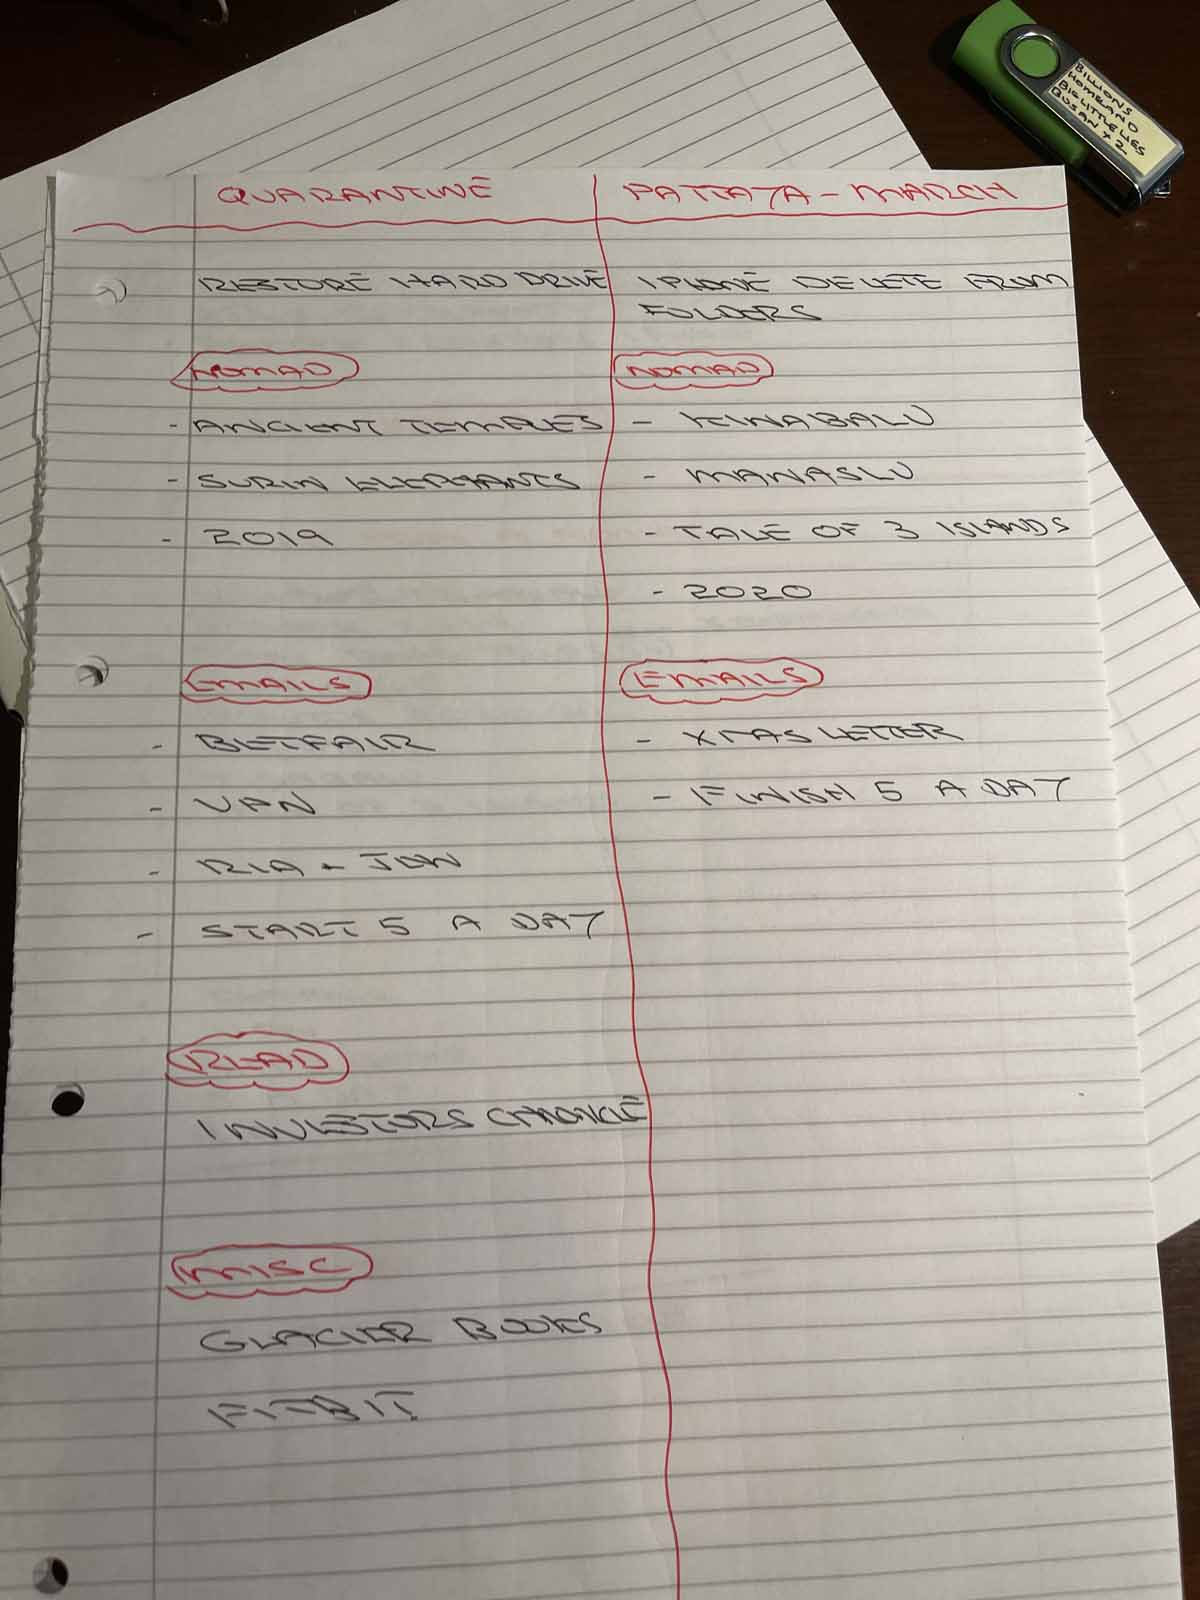 BILLIONS
HOMELAND
BIG LITTLE LIES
QUSAN X 2
QUARANTINE
RESTORE HARD DRIVE
NOMAD
- ANCIENT TEMPLES
- SURIN ELEPHANTS
- 2019
EMAILS
- BETFAIR
- VPN
- RIA + JON
- START 5 A DAY
READ
INVESTORS CHRONICLE
MISC
GLACIER BOOKS
FITBIT
PATTAYA - MARCH
IPHONE DELETE FROM
FOLDERS
NOMAD
- KINABALU
- MANASLU
- TALE OF 3 ISLANDS
- 2020
EMAILS
- XMAS LETTER
- FINISH 5 A DAY